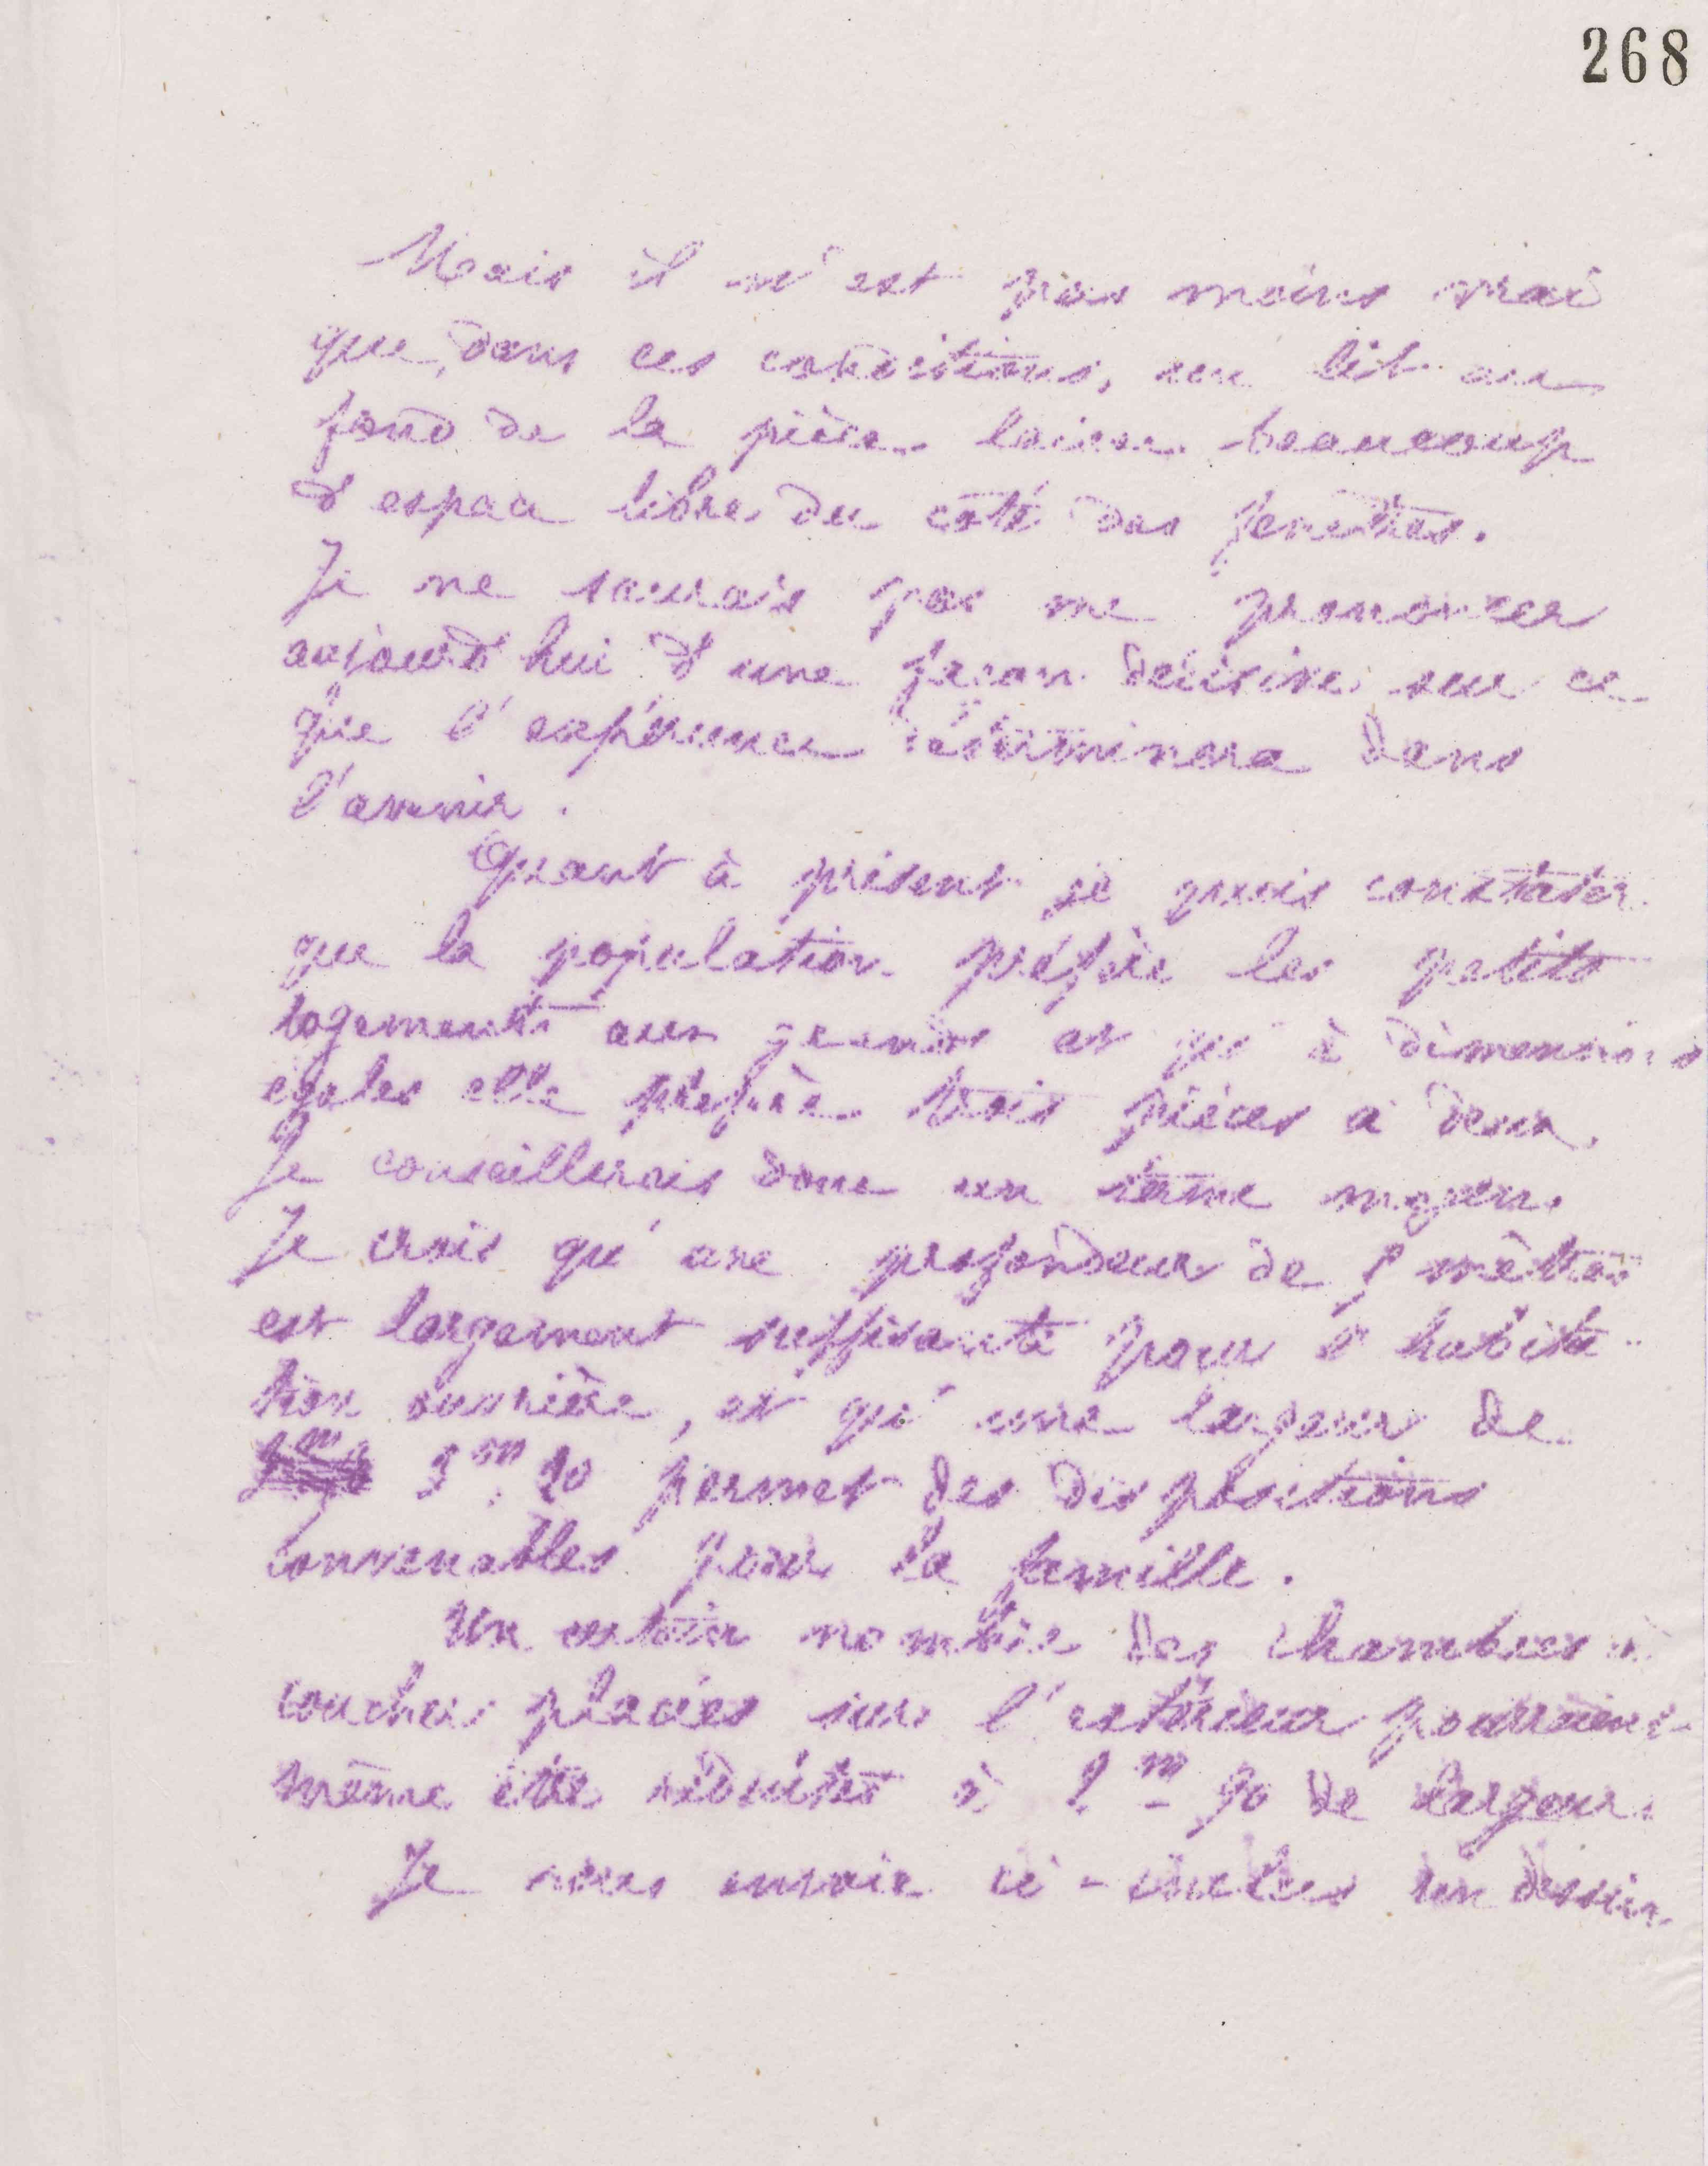 268
Mais il n'est pas moins vrai
que, dans ces conditions, un lit au
fond de la pièce laisse beaucoup
d'espace libre du côté des fenêtres.
Je ne saurais pas me prononcer
aujourd'hui d'une façon décisive sur ce
que l'expérience déterminera dans
l'avenir.
Quant à présent je puis constater
que la population préfère les petits
logements aux grands et qu'à dimensions
égales elle préfère trois pièces à deux.
Je conseillerais donc un terme moyen.
Je crois qu'une profondeur de mètres
est largement suffisante pour l'habita-
tion ouvrière, et qu'une largeur de
3m,20 permet des dispositions
convenables pour la famille.
Un certain nombre des chambres à
coucher placées sur l'extérieur pourraient
même être réduites à de largeur.
Je vous envoie ci-inclus un dessin